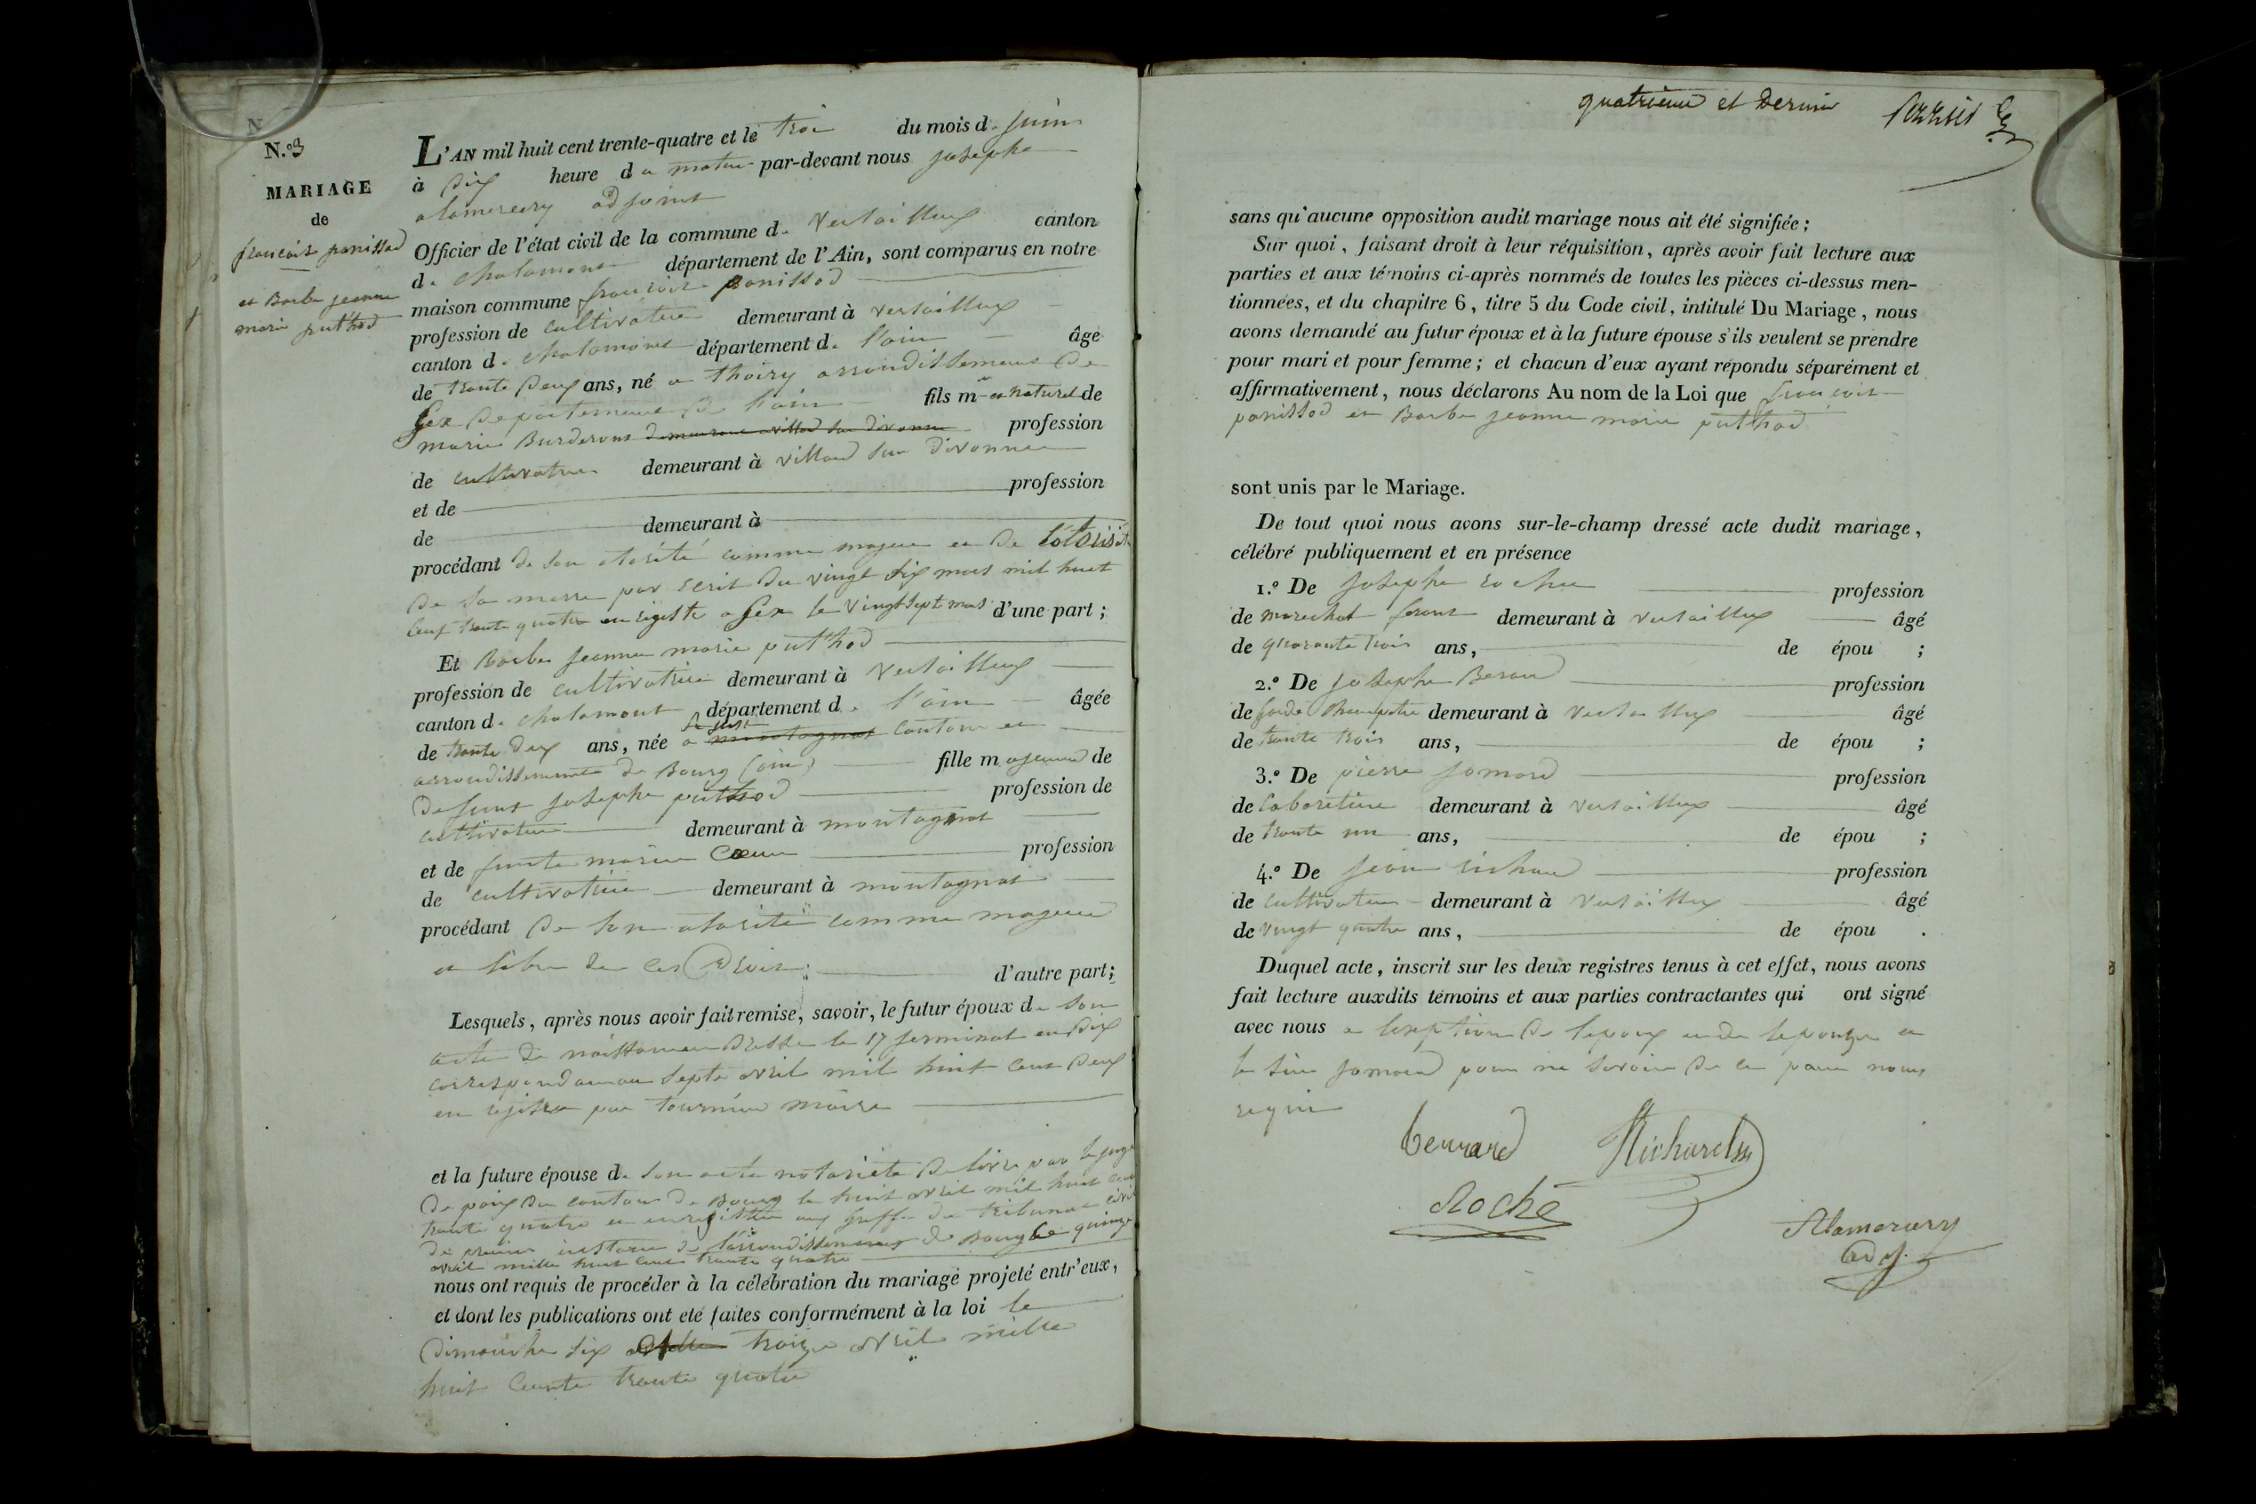 N.
N.o 3
MARIAGE
de
françois panissod
et Barbe jeanne
marie puthod
L'AN mil huit cent trente-quatre et le troi du mois d. juin
à dix heure du matin par-devant nous josephe
alamercery adjoint
Officier de l'état civil de la commune d. versailleux canton
d. chalamont département de l'Ain, sont comparus en notre
maison commune francois panissod
profession de cultivateur demeurant à versailleux
canton d. chalamont département d. l'ain âge
de trente deux ans, né a thoiry arrondissement de
Gex departement de l'ain fils m naturel de
marie Burderons demeurant a villad sur divonne profession
de cultivatrice demeurant à villard sur divonne
et de profession
de demeurant à
procédant de son otorité comme majeur et de
de sa merre par scrit du vingt six mars mil huit
cent trente quatre enregistre a Gex le vingt sept mars d'une part ;
Et Barbe jeanne marie puthod
profession de cultivatrice demeurant à versailleux
canton d. chalamont département d. l'ain âgée
de trente deux ans, née a montagnat canton et
arrondissement de Bourg (ain) fille majeure de
defunt josephe puthod profession de
cultivateur demeurant à montagnat
et de funte marie Coeur profession
de cultivatrice demeurant à montagnat
procédant de son otorité comme majeure
et libre de ces droit d'autre part ;
Lesquels, après nous avoir fait remise, savoir, le futur époux d. son
acte de naissance dressé le 17 germinal an dix
correspondant au septe avril mil huit cent deux
en registre par tournier maire
et la future épouse d. son acte notoriete delivré par le juge
de paix du canton de Bourg le huit avril mil huit cent
trente quatre et enregistré aux greffe du tribunal civil
de premier instance de l'arrondissement de Bourg le quinze
avril mille huit cent trente quatre
nous ont requis de procéder à la célébration du mariage projeté entr'eux,
et dont les publications ont été faites conformément à la loi le
dimanche six treize avril mille
huit cente trente quatre
quatrième et dernier
sans qu'aucune opposition audit mariage nous ait été signifiée ;
Sur quoi, faisant droit à leur réquisition, après avoir fait lecture aux
parties et aux témoins ci-après nommés de toutes les pièces ci-dessus men-
tionnées, et du chapitre 6, titre 5 du Code civil, intitulé Du Mariage, nous
avons demandé au futur époux et à la future épouse s'ils veulent se prendre
pour mari et pour femme ; et chacun d'eux ayant répondu séparément et
affirmativement, nous déclarons Au nom de la Loi que françois
panissod et Barbe jeanne marie puthod
sont unis par le Mariage.
De tout quoi nous avons sur-le-champ dressé acte dudit mariage,
célébré publiquement et en présence
1.o De josephe roche profession
de marechal ferant demeurant à versailleux âgé
de quarante trois ans, de épou ;
2.o De josephe Beran profession
de garde champetre demeurant à versailleux âgé
de trente trois ans, de épou ;
3.o De pierre jomard profession
de laboretiere demeurant à versailleux âgé
de trente un ans, de épou ;
4.o De jean richard profession
de cultivateur demeurant à versailleux âgé
de vingt quatre ans, de épou .
Duquel acte, inscrit sur les deux registres tenus à cet effet, nous avons
fait lecture auxdits témoins et aux parties contractantes qui ont signé
avec nous a lexption de lepoux et de lepouze et
le sieur jomard pour ne savoir de ce paur nous
requis
bernard Richard
Roche
Alamercery
adj.